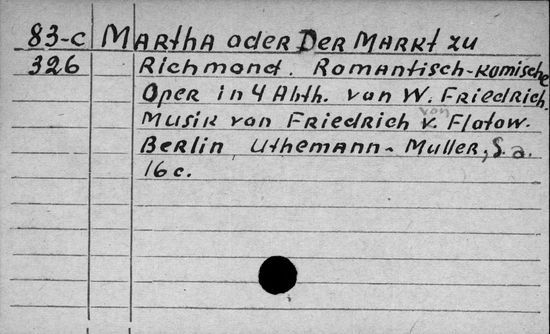 83-c MARTHA oder DER MARKT zu
326 RICHMOND. ROMANTISCH-KOMISCHE
OPER in 4 Abth. von W. FRIEDRICH.
MUSIK von FRIEDRICH v. Flotow.
von
BERLIN, Uthemann-Muller, S. a.
16 c.